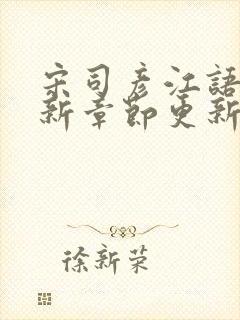 宋司彦江語
新章節更新
徐新荣